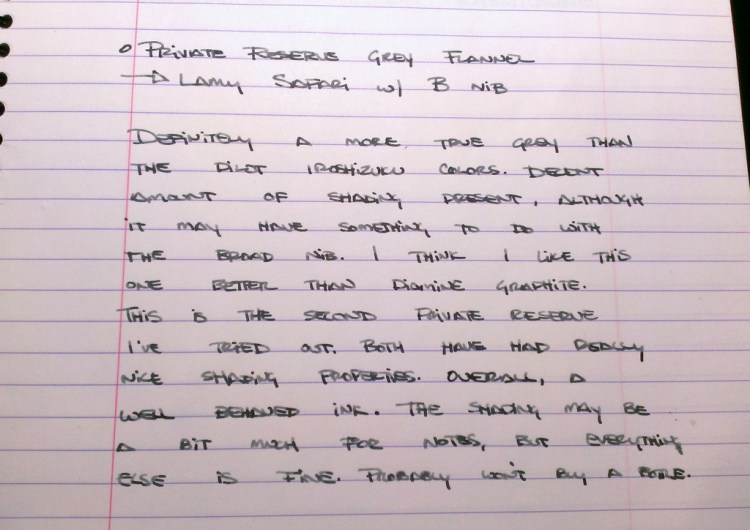 o Private Reserve Grey Flannel
→ Lamy Safari w/ B nib
Definitely a more true grey than
the Pilot Iroshizuku colors. Decent
amount of shading present, although
it may have something to do with
the broad nib. I think I like this
one better than Diamine Graphite.
This is the second Private Reserve
I've tried out. Both have had really
nice shading properties. Overall, a
well behaved ink. The shading may be
a bit much for notes, but everything
else is fine. Probably won't buy a bottle.